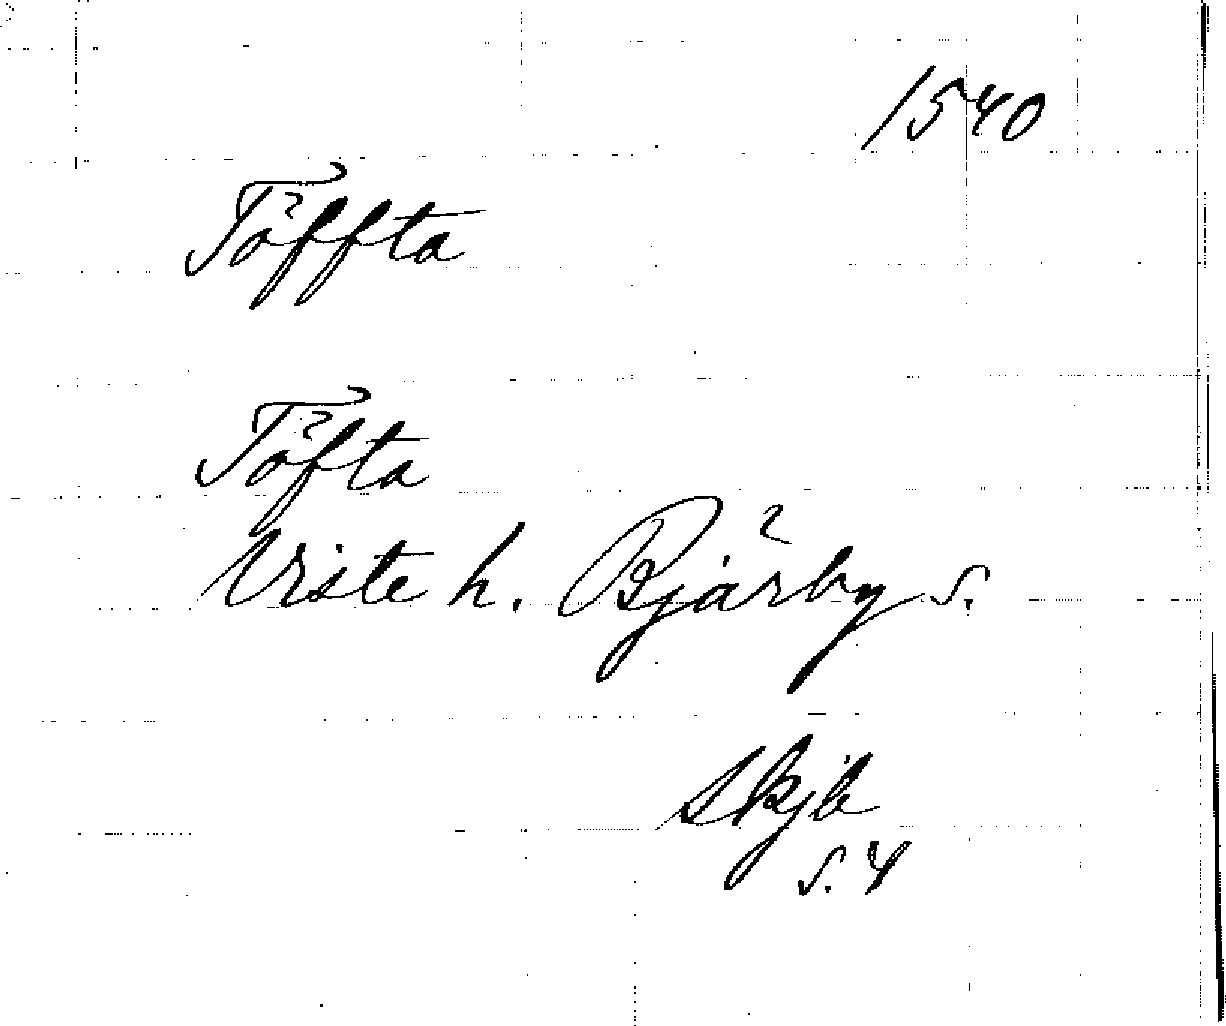 1540
Töffta
Töfta
Viste h. Bjärby s.
Skjb
s. 4